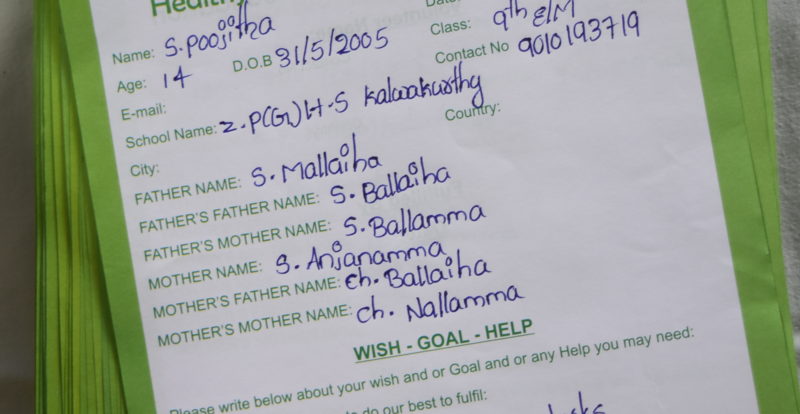 Name: S. Poojitha
Age: 14 D.O.B 31/5/2005 Class: 9th E/M
E-mail: Contact No 9010193719
School Name: Z.P(G)H.S Kalwakurthy
City: Country:
FATHER NAME: S. Mallaiha
FATHER'S FATHER NAME: S. Ballaiha
FATHER'S MOTHER NAME: S. Ballamma
MOTHER NAME: S. Anjanamma
MOTHER'S FATHER NAME: Ch. Ballaiha
MOTHER'S MOTHER NAME: Ch. Nallamma
WISH - GOAL - HELP
Please write below about your wish and or Goal and or any Help you may need:
do our best to fulfil: